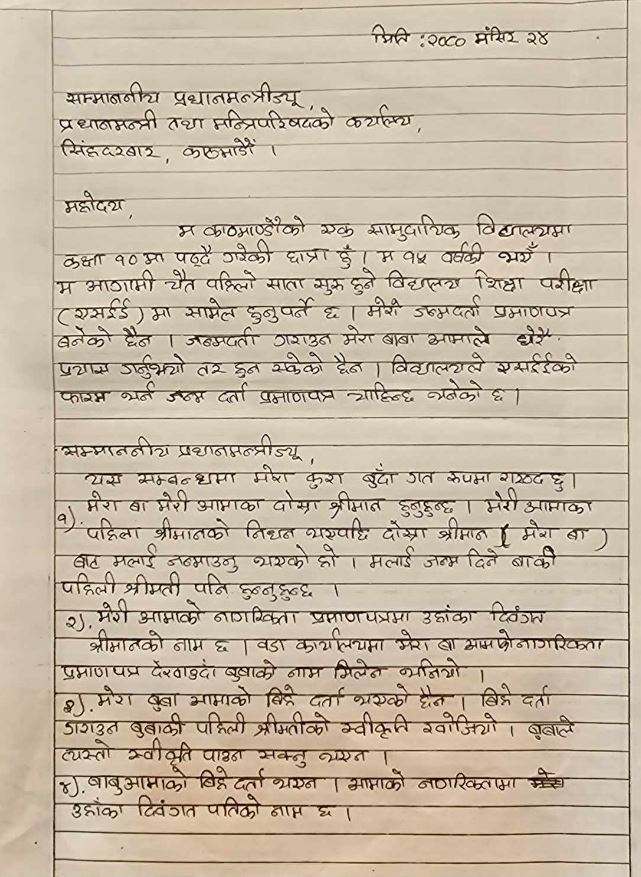 मिति : २०८० मंसिर २४
सम्माननीय प्रधानमन्त्रीज्यू,
प्रधानमन्त्री तथा मन्त्रिपरिषदको कार्यालय,
सिंहदरबार, काठमाडौं ।
महोदय,
म काठमाण्डौंको एक सामुदायिक विद्यालयमा
कक्षा १० मा पढ्दै गरेकी छात्रा हुँ । म १५ वर्षकी भएँ ।
म आगामी चैत पहिलो साता सुरु हुने विद्यालय शिक्षा परीक्षा
(एसईई) मा सामेल हुनुपर्ने छ । मेरो जन्मदर्ता प्रमाणपत्र
बनेको छैन । जन्मदर्ता गराउन मेरा बाबा आमाले धेरै
प्रयास गर्नुभयो तर हुन सकेको छैन । विद्यालयले एसईईको
फारम भर्न जन्म दर्ता प्रमाणपत्र चाहिन्छ भनेको छ ।
सम्माननीय प्रधानमन्त्रीज्यू,
यस सम्बन्धमा मेरा कुरा बुँदा गत रुपमा राख्दछु ।
१). मेरा बा मेरी आमाका दोस्रा श्रीमान हुनुहुन्छ । मेरी आमाका
पहिला श्रीमानको निधन भएपछि दोस्रा श्रीमान (मेरा बा)
बाट मलाई जन्माउनु भएको हो । मलाई जन्म दिने बाकी
पहिली श्रीमती पनि हुनुहुन्छ ।
२). मेरी आमाको नागरिकता प्रमाणपत्रमा उहाँका दिवंगत
श्रीमानको नाम छ । वडा कार्यालयमा मेरा बा आमाको नागरिकता
प्रमाणपत्र देखाउदा बुबाको नाम मिलेन भनियो ।
३). मेरा बुबा आमाको बिहे दर्ता भएको छैन । बिहे दर्ता
गराउन बुबाकी पहिली श्रीमतीको स्वीकृति खोजियो । बुबाले
त्यस्तो स्वीकृति पाउन सक्नु भएन ।
४). बाबु आमाको बिहे दर्ता भएन । आमाको नागरिकतामा
उहाँका दिवंगत पतिको नाम छ ।